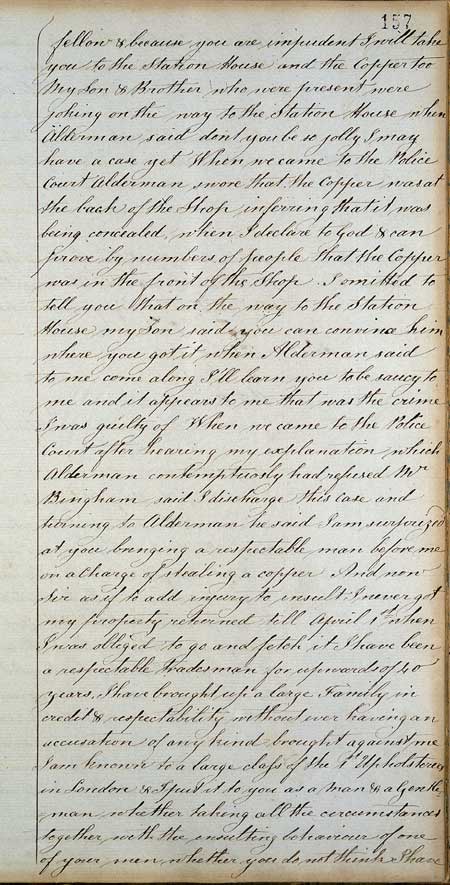 157
fellow & because you are impudent I will take
you to the Station House and the Copper too
My Son & Brother who were present were
joking on the way to the Station House when
Alderman said dont you be so jolly I may
have a case yet When we came to the Police
Court Alderman swore that the Copper was at
the back of the Shop inferring that it was
being concealed, when I declare to God & can
prove by numbers of people that the Copper
was in the front of the Shop. I omitted to
tell you that on the way to the Station
House my Son said you can convince him
where you got it when Alderman said
to me come along I'll learn you to be saucy to
me and it appears to me that was the crime
I was guilty of When we came to the Police
Court after hearing my explanation which
Alderman contemptiously had refused Mr
Bingham said I discharge this case and
turning to Alderman he said I am surprized
at you bringing a respectable man before me
on a Charge of stealing a copper And now
Sir as if to add injury to insult I never got
my property returned till April 1st when
I was obliged to go and fetch it I have been
a respectable Tradesman for upwards of 40
years, I have brought up a large Family in
credit & respectability without ever having an
accusation of any kind brought against me
I am known to a large class of the 1st Upholsterers
in London & I put it to you as a Man & a Gentle-
-man whether taking all the circumstances
together with the insulting behaviour of one
of your men whether you do not think I have